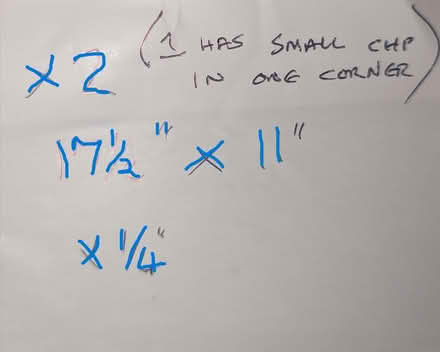 x 2 (1 HAS SMALL CHP
IN ONE CORNER)
17 1/2" x 11"
x 1/4"